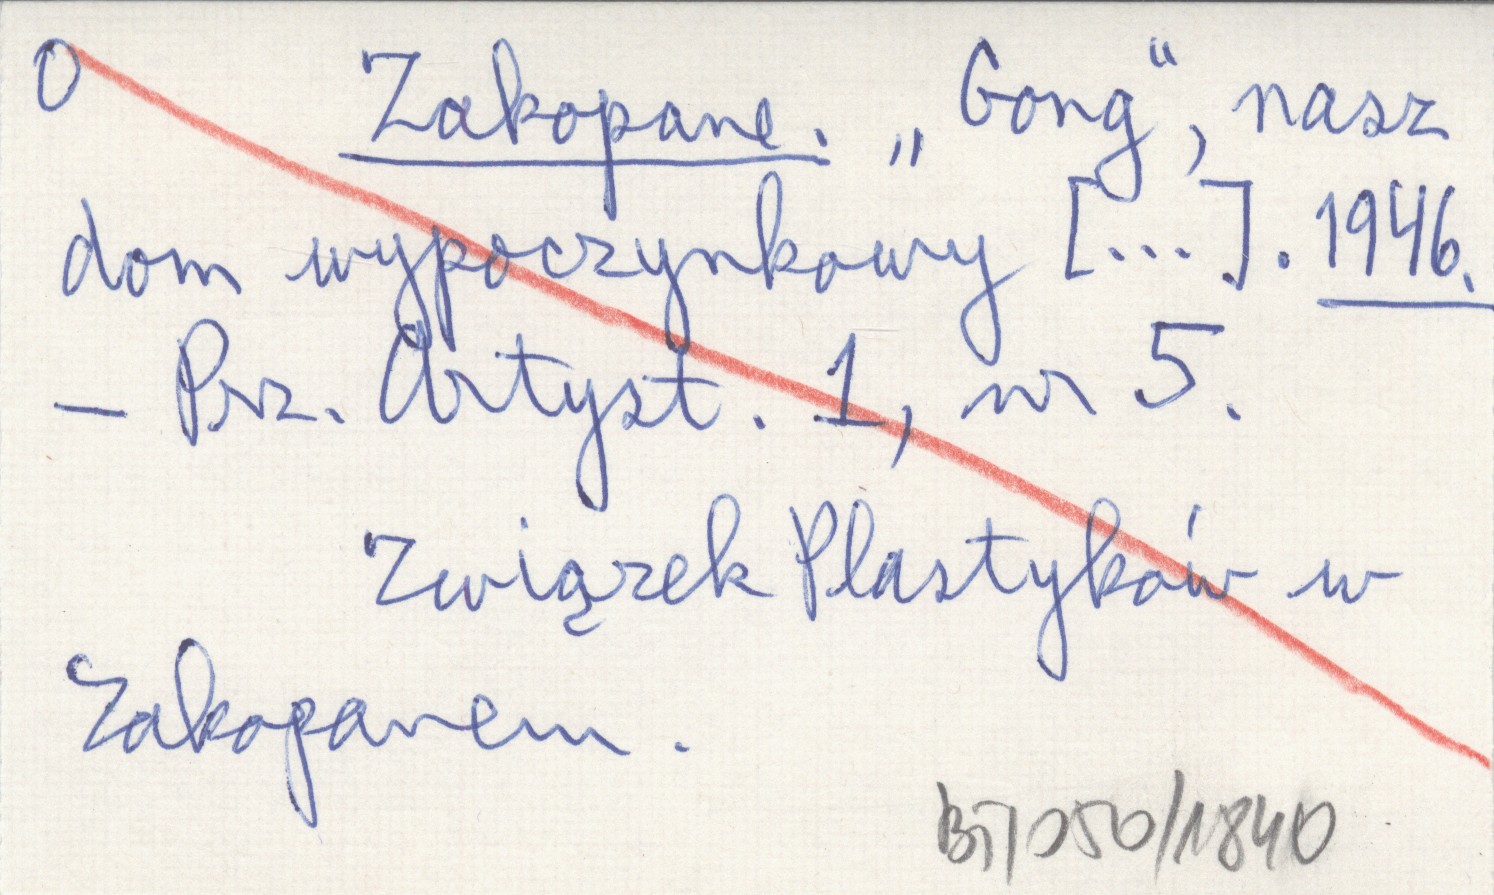 O Zakopane. „Gong“, nasz
dom wypoczynkowy [...]. 1946.
– Prz. Artyst. 1, nr 5.
Związek Plastyków w
Zakopanem.
BJ/050/1840